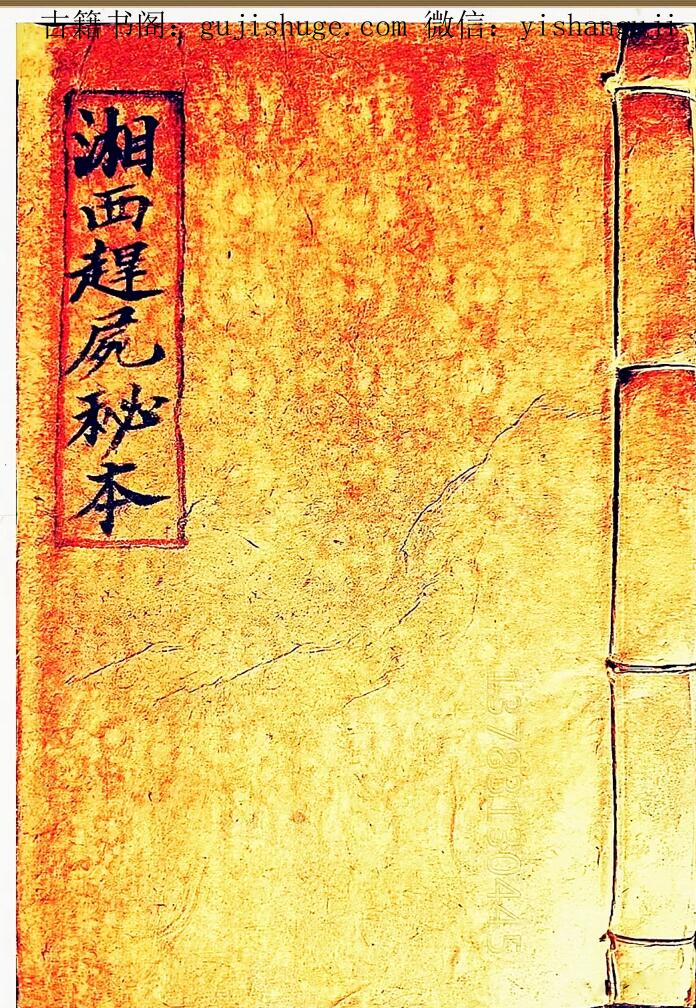 古籍书阁：gujishuge.com 微信：yishanguji
湘西趕屍秘本
13783130445